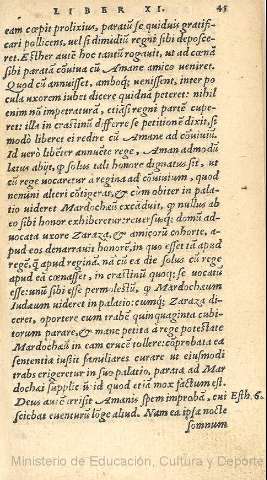 LIBER XI. 45
eam cœpit prolixius, paratũ se quiduis gratifi-
cari pollicens, vel si dimidiũ regni sibi deposce-
ret. Esther autẽ hoc tantũ rogauit, ut ad cœnã
sibi paratã cõuiua cũ Amane amico veniret.
Quod cũ annuisset, amboq; venissent, inter po
cula vxorem iubet dicere quidnã peteret: nihil
enim nõ impetraturã, etiãsi regni partẽ cupe-
ret: illa in crastinũ differre se petitionẽ dixit, si
modò liberet ei redire cũ Amane ad cõuiuiũ.
Id verò libẽter annuẽte rege, Aman admodũ
lætus abijt, φ solus tali honore dignatus sit, ut
cũ rege vocaretur à regina ad cõuiuium, quod
nemini alteri cõtigerat, & cũm obiter in pala-
tio uideret Mardochæũ excãduit, φ nullus ab
eo sibi honor exhiberetur: reuersusq; domũ ad-
uocata uxore Zaraza, & amicorũ cohorte, a-
pud eos denarrauit honorẽ, in quo esset tã apud
regẽ, ꝗ̃ apud reginã. nã cũ ea die solus cũ rege
apud eã cœnasset, in crastinũ quoq; se vocatũ
esse: unũ sibi esse permolestũ, φ Mardochæum
Iudæum uideret in palatio: cumq; Zaraza di-
ceret, oportere cum trabẽ quinquaginta cubi-
torum parare, & manè petita à rege potestate
Mardochæũ in eam crucẽ tollere: cõprobata ea
sententia iussit familiares curare ut eiusmodi
trabs erigeretur in suo palatio, parata ad Mar
dochæi suppliciũ id quod etiã mox factum est.
Deus autẽ irrisit Amanis spem improbã, cui Esth. 6.
sciebat euenturũ lõge aliud. Nam ea ipsa nocte
somnum
Ministerio de Educación, Cultura y Deporte